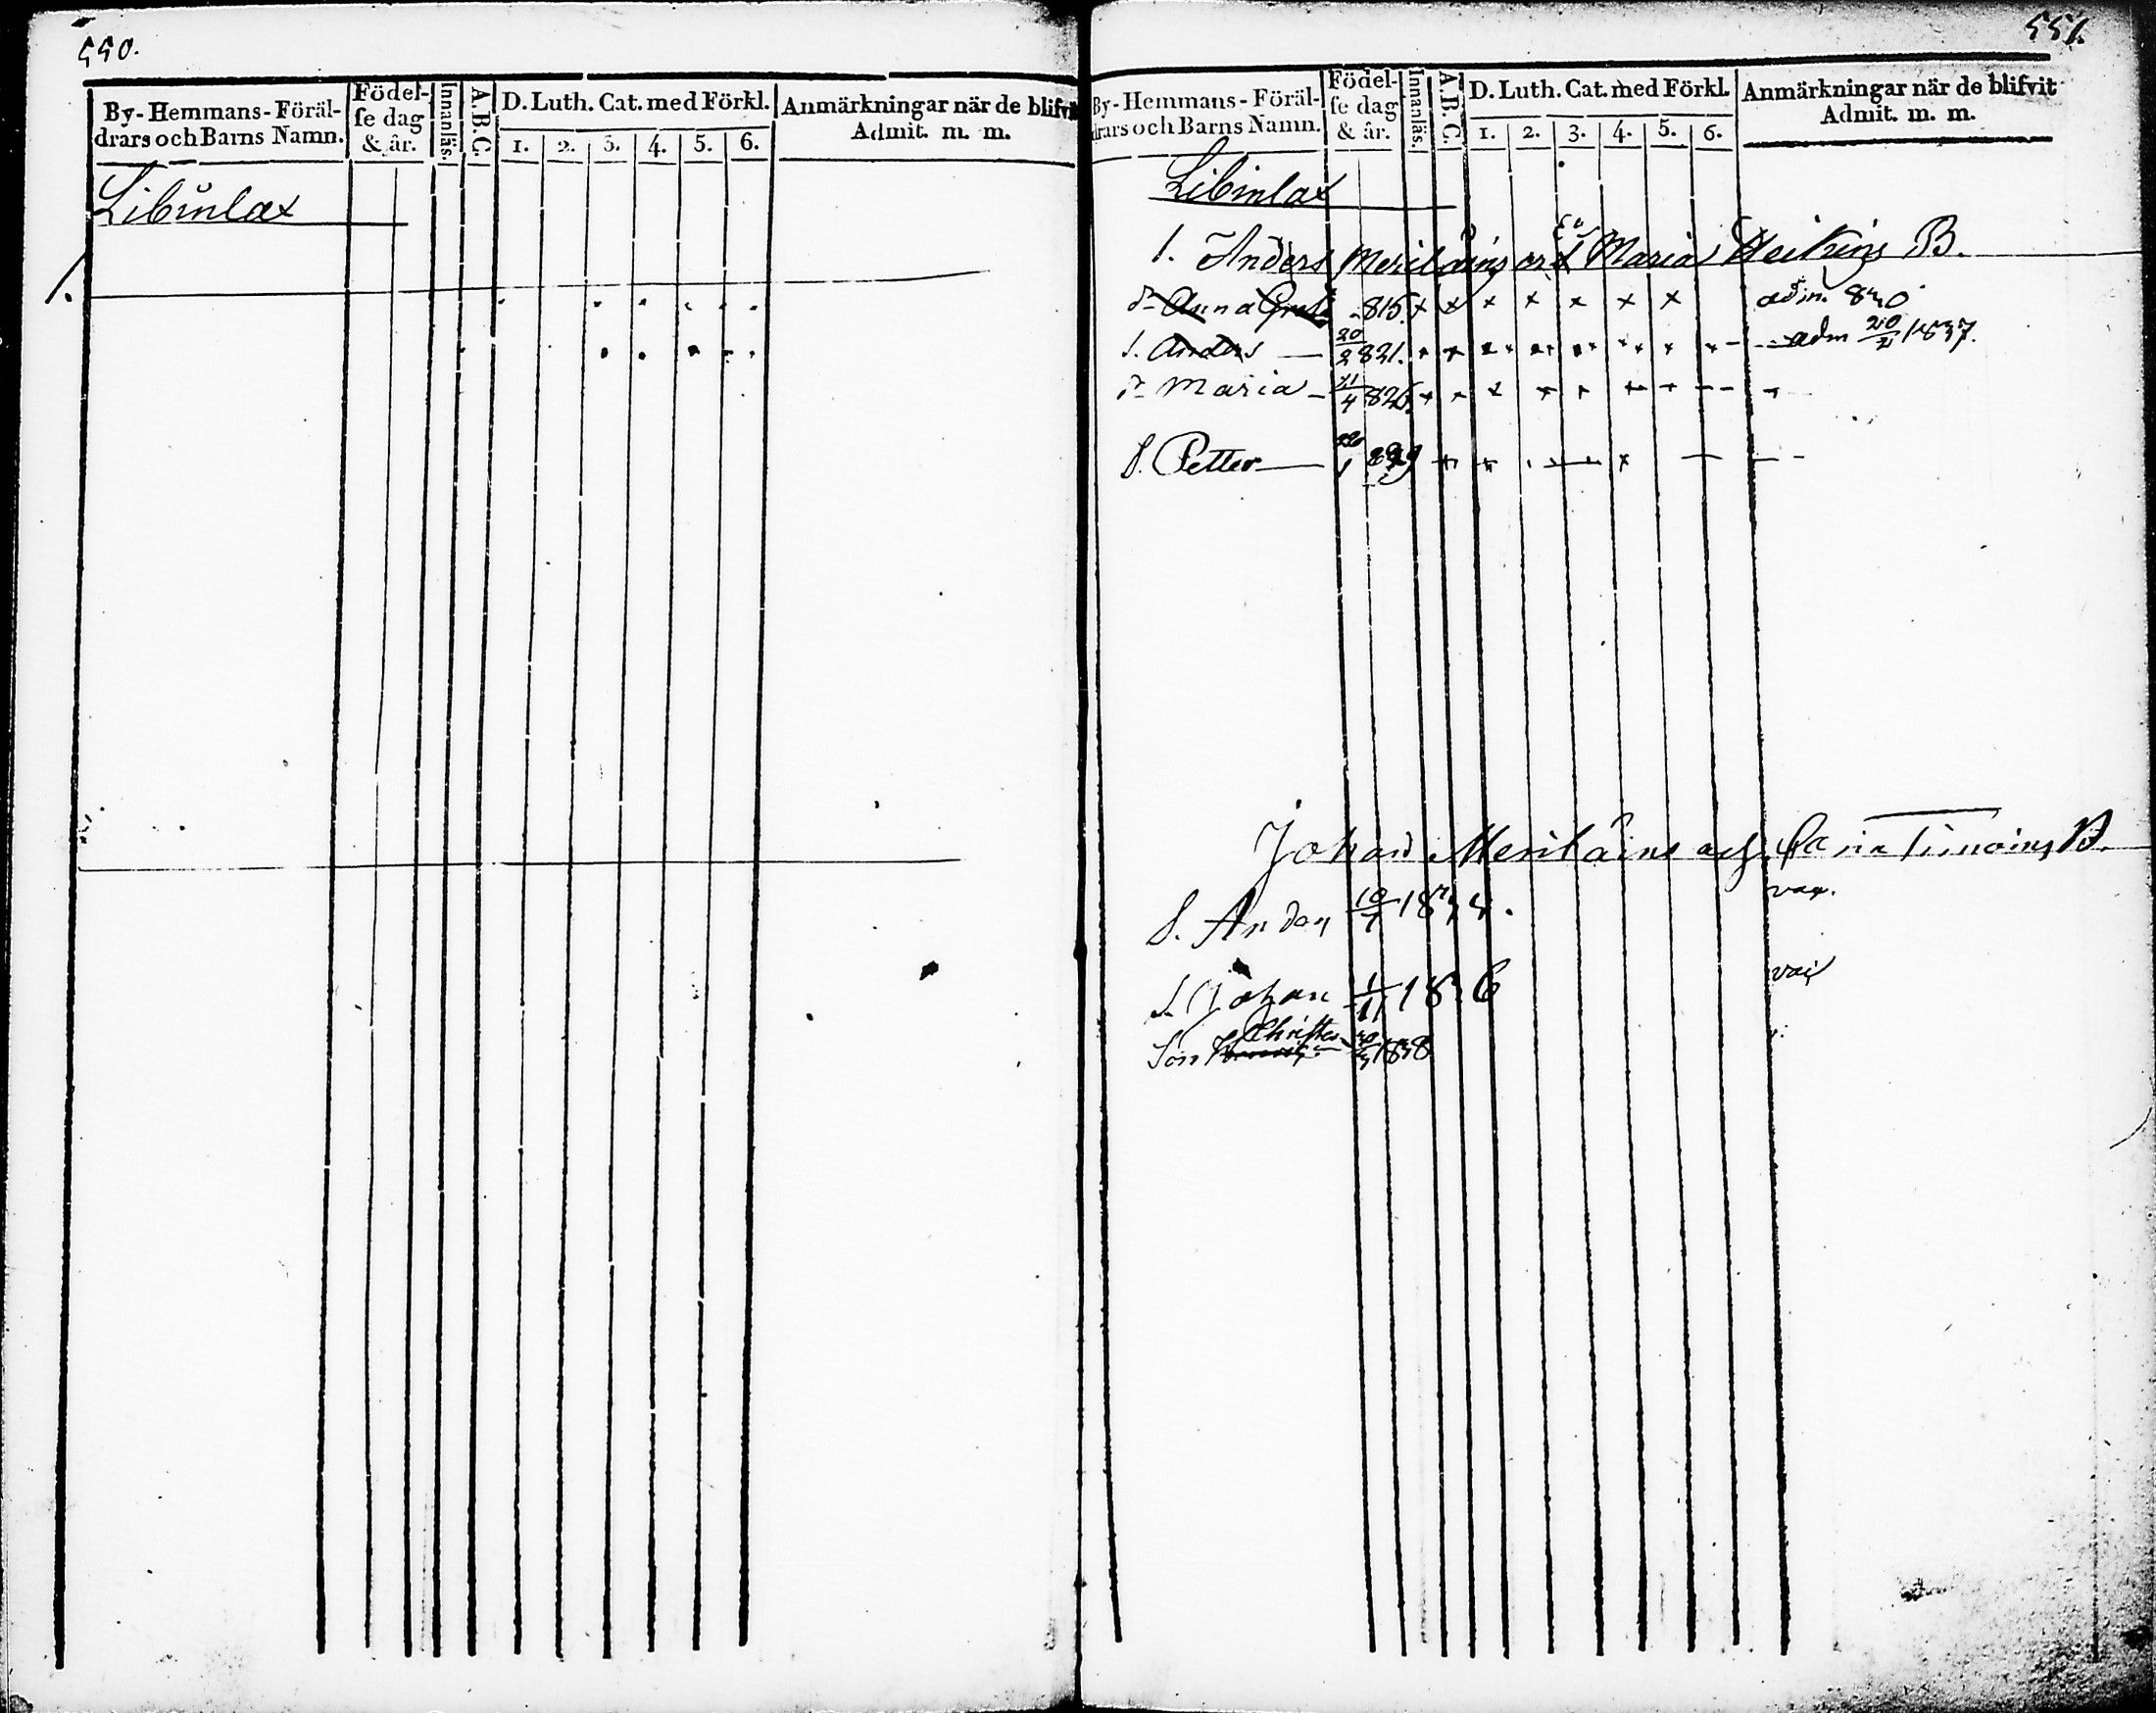 550.
By-Hemmans-Föräl-
drars och Barns Namn.
Födel-
se dag
& år.
Innanläs.
A.B.C.
D. Luth. Cat. med Förkl.
1. 2. 3. 4. 5. 6.
Anmärkningar när de blifvit
Admit. m. m.
Libinlax
1.
551.
By-Hemmans-Föräl-
drars och Barns Namn.
Födel-
se dag
& år.
Innanläs.
A.B.C.
D. Luth. Cat. med Förkl.
1. 2. 3. 4. 5. 6.
Anmärkningar när de blifvit
Admit. m. m.
Libinlax
1. Anders Meriläins Maria Heikins B.
d. Anna Greta 815. x x x x x x x adm. 840
S. Anders 20/2 821. adm 20/1837.
d. Maria 11/4 826.
S. Petter 829
Johan Meriläins Timoins B.
S. Anders 10/7 1834. vac.
S. Johan 1/11 1836
Son Christer 1838